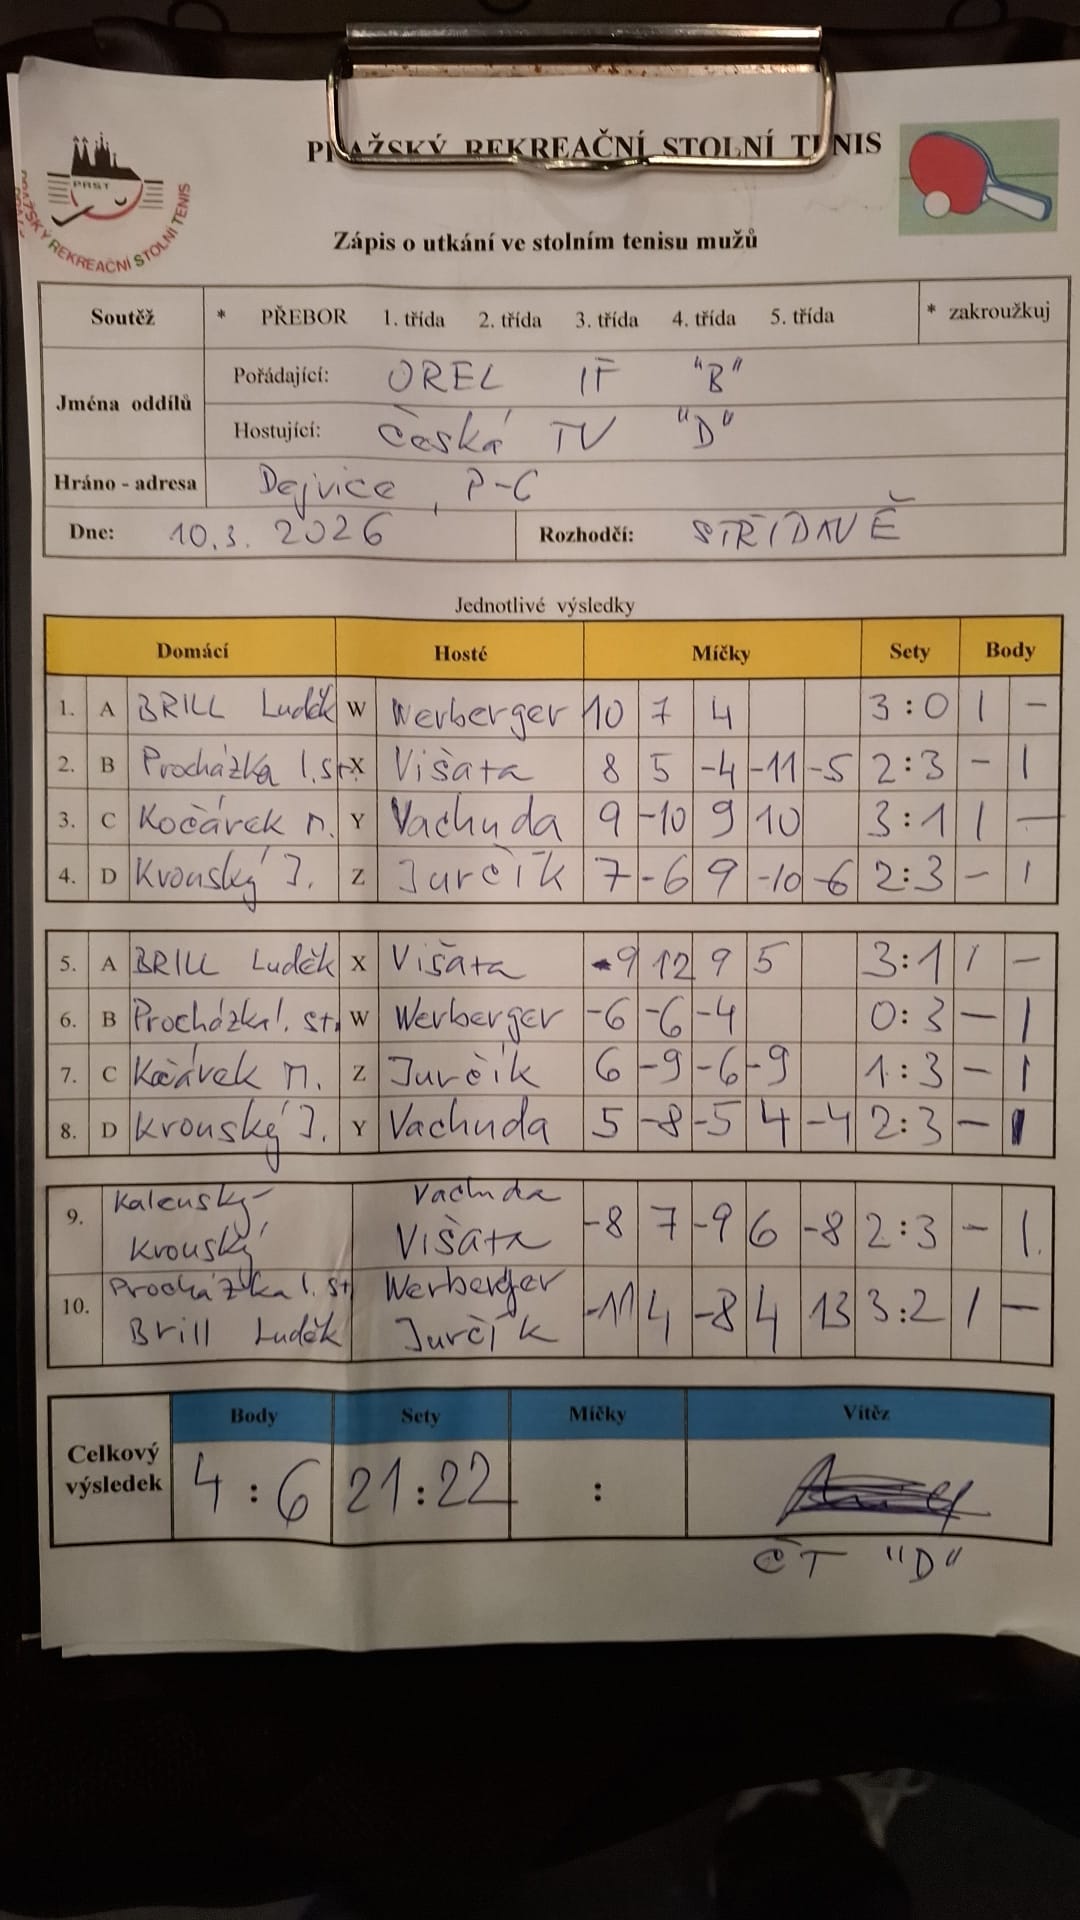 PRAŽSKÝ REKREAČNÍ STOLNÍ TENIS
PRST
PRAŽSKÝ REKREAČNÍ STOLNÍ TENIS
Zápis o utkání ve stolním tenisu mužů
Soutěž * PŘEBOR 1. třída 2. třída 3. třída 4. třída 5. třída * zakroužkuj
Jména oddílů
Pořádající: OREL IF "B"
Hostující: Česká TV "D"
Hráno - adresa Dejvice, P-6
Dne: 10.3. 2026 Rozhodčí: STŘÍDAVĚ
Jednotlivé výsledky
Domácí Hosté Míčky Sety Body
1. A BRILL Luděk W Werberger 10 7 4 3:0 1 -
2. B Procházka I. st. X Višata 8 5 -4 -11 -5 2:3 - 1
3. C Kočárek M. Y Vachuda 9 -10 9 10 3:1 1 -
4. D Krouský J. Z Jurčík 7 -6 9 -10 -6 2:3 - 1
5. A BRILL Luděk X Višata -9 12 9 5 3:1 1 -
6. B Procházka I. st. W Werberger -6 -6 -4 0:3 - 1
7. C Kočárek M. Z Jurčík 6 -9 -6 -9 1:3 - 1
8. D Krouský J. Y Vachuda 5 -8 -5 4 -4 2:3 - 1
9. Kalenský Vachuda
Krouský Višata -8 7 -9 6 -8 2:3 - 1
10. Procházka I. st. Werberger
Brill Luděk Jurčík -11 4 -8 4 13 3:2 1 -
Body Sety Míčky Vítěz
Celkový výsledek 4:6 21:22 :
ČT "D"